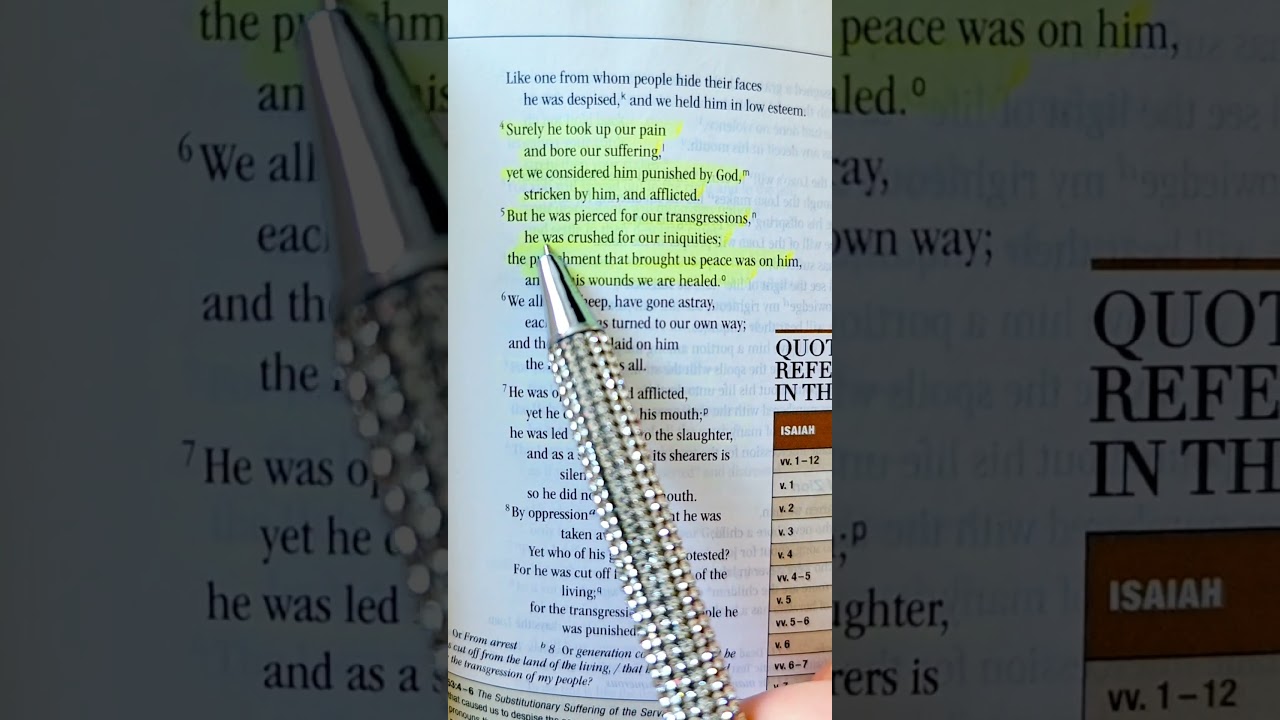 Like one from whom people hide their faces
he was despised,ᵏ and we held him in low esteem.
⁴Surely he took up our pain
and bore our suffering,ˡ
yet we considered him punished by God,ᵐ
stricken by him, and afflicted.
⁵But he was pierced for our transgressions,ⁿ
he was crushed for our iniquities;
the p hment that brought us peace was on him,
an is wounds we are healed.ᵒ
⁶We all eep, have gone astray,
eac s turned to our own way;
and th laid on him
the s all.
⁷He was o d afflicted,
yet he his mouth;ᵖ
he was led o the slaughter,
and as a its shearers is
silen
so he did n outh.
⁸By oppressionᵃ t he was
taken a
Yet who of his otested?
For he was cut off of the
living;q
for the transgressi ple he
was punished
Or From arrest ᵇ8 Or generation co be
cut off from the land of the living, / that
the transgression of my people?
53:4–6 The Substitutionary Suffering of the Serv
that caused us to despise the
pronouns
QUOT
REFE
IN TH
ISAIAH
vv. 1–12
v. 1
v. 2
v. 3
v. 4
vv. 4–5
v. 5
vv. 5–6
v. 6
vv. 6–7
the p hm
an is
⁶We all
eac
and th
the
⁷He was o
yet he
he was led
and as a s
peace was on him,
led.ᵒ
ray,
own way;
QUOT
REFE
IN TH
;ᵖ
ughter,
rers is
ISAIAH
vv. 1–12